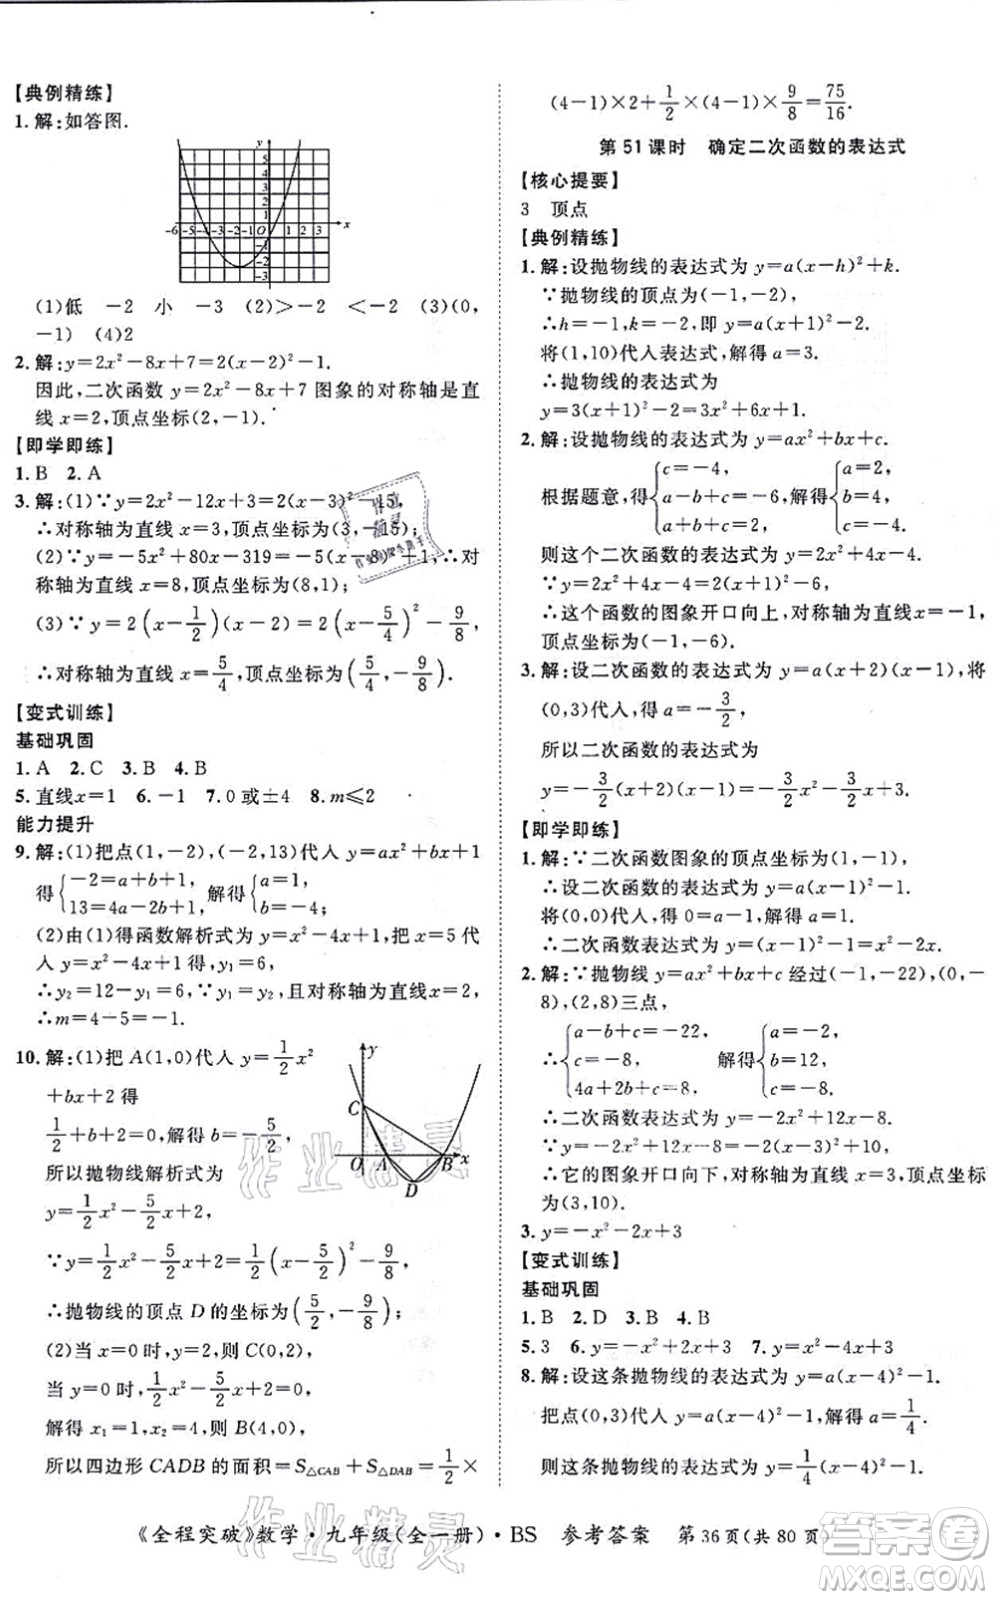 【典例精练】
1.解:如答图.
y
5
4
3
2
1
-6 -5 -4 -3 -2 -1 O 1 2 3 x
-1
-2
-3
(1)低 -2 小 -3 (2)>-2 <-2 (3)(0,
-1) (4)2
2.解:y=2x²-8x+7=2(x-2)²-1.
因此,二次函数 y=2x²-8x+7 图象的对称轴是直
线 x=2,顶点坐标(2,-1).
【即学即练】
1.B 2.A
3.解:(1)∵y=2x²-12x+3=2(x-3)²-15,
∴对称轴为直线 x=3,顶点坐标为(3,-15);
(2)∵y=-5x²+80x-319=-5(x-8)²+1,∴对
称轴为直线 x=8,顶点坐标为(8,1);
(3)∵y=2(x-1/2)(x-2)=2(x-5/4)²-9/8,
∴对称轴为直线 x=5/4,顶点坐标为(5/4,-9/8).
【变式训练】
基础巩固
1.A 2.C 3.B 4.B
5.直线x=1 6.-1 7.0或±4 8.m≤2
能力提升
9.解:(1)把点(1,-2),(-2,13)代入 y=ax²+bx+1
得{-2=a+b+1, 13=4a-2b+1, 解得{a=1, b=-4;
(2)由(1)得函数解析式为 y=x²-4x+1,把 x=5 代
入 y=x²-4x+1,得 y₁=6,
∴y₂=12-y₁=6,∵y₁=y₂,且对称轴为直线x=2,
∴m=4-5=-1.
10.解:(1)把 A(1,0)代入 y=1/2x²
+bx+2 得
1/2+b+2=0,解得 b=-5/2,
所以抛物线解析式为
y=1/2x²-5/2x+2,
∵y=1/2x²-5/2x+2=1/2(x-5/2)²-9/8,
∴抛物线的顶点 D 的坐标为(5/2,-9/8);
(2)当 x=0 时,y=2,则 C(0,2),
当 y=0 时,1/2x²-5/2x+2=0,
解得 x₁=1,x₂=4,则 B(4,0),
所以四边形 CADB 的面积=S△CAB+S△DAB=1/2×
y
C
O A B x
D
(4-1)×2+1/2×(4-1)×9/8=75/16.
第 51 课时 确定二次函数的表达式
【核心提要】
3 顶点
【典例精练】
1.解:设抛物线的表达式为 y=a(x-h)²+k.
∵抛物线的顶点为(-1,-2),
∴h=-1,k=-2,即 y=a(x+1)²-2.
将(1,10)代入表达式,解得 a=3.
∴抛物线的表达式为
y=3(x+1)²-2=3x²+6x+1.
2.解:设抛物线的表达式为 y=ax²+bx+c.
根据题意,得{c=-4, a-b+c=-6, a+b+c=2, 解得{a=2, b=4, c=-4,
则这个二次函数的表达式为 y=2x²+4x-4.
∵y=2x²+4x-4=2(x+1)²-6,
∴这个函数的图象开口向上,对称轴为直线x=-1,
顶点坐标为(-1,-6).
3.解:设二次函数的表达式为 y=a(x+2)(x-1),将
(0,3)代入,得 a=-3/2,
所以二次函数的表达式为
y=-3/2(x+2)(x-1)=-3/2x²-3/2x+3.
【即学即练】
1.解:∵二次函数图象的顶点坐标为(1,-1),
∴设二次函数的表达式为 y=a(x-1)²-1.
将(0,0)代入,得 0=a-1,解得 a=1.
∴二次函数的表达式为 y=(x-1)²-1.
2.解:∵抛物线 y=ax²+bx+c 经过(-1,-22),(0,-
8),(2,8)三点,
∴{a-b+c=-22, c=-8, 4a+2b+c=8, 解得{a=-2, b=12, c=-8.
∴二次函数表达式为 y=-2x²+12x-8.
∵y=-2x²+12x-8=-2(x-3)²+10,
∴它的图象开口向下,对称轴为直线 x=3,顶点坐
标为(3,10).
3.y=-x²-2x+3
【变式训练】
基础巩固
1.B 2.D 3.B 4.B
5.3 6.y=-x²+2x+3 7.y=x²-4x+3
8.解:设这条抛物线的表达式为 y=a(x-4)²-1.
把点(0,3)代入 y=a(x-4)²-1,解得 a=1/4.
则这条抛物线的表达式为 y=1/4(x-4)²-1.
《全程突破》数学·九年级(全一册)·BS 参考答案 第 36 页(共 80 页)
作业精灵
作业精灵
作业帮答案
MXQE.COM